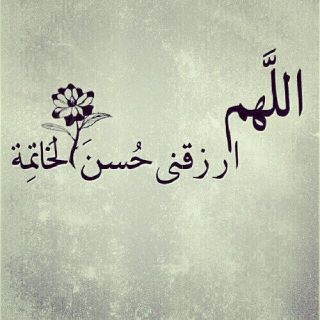 اللَّهم
ارزقنى حُسنَ الخَاتِمِة